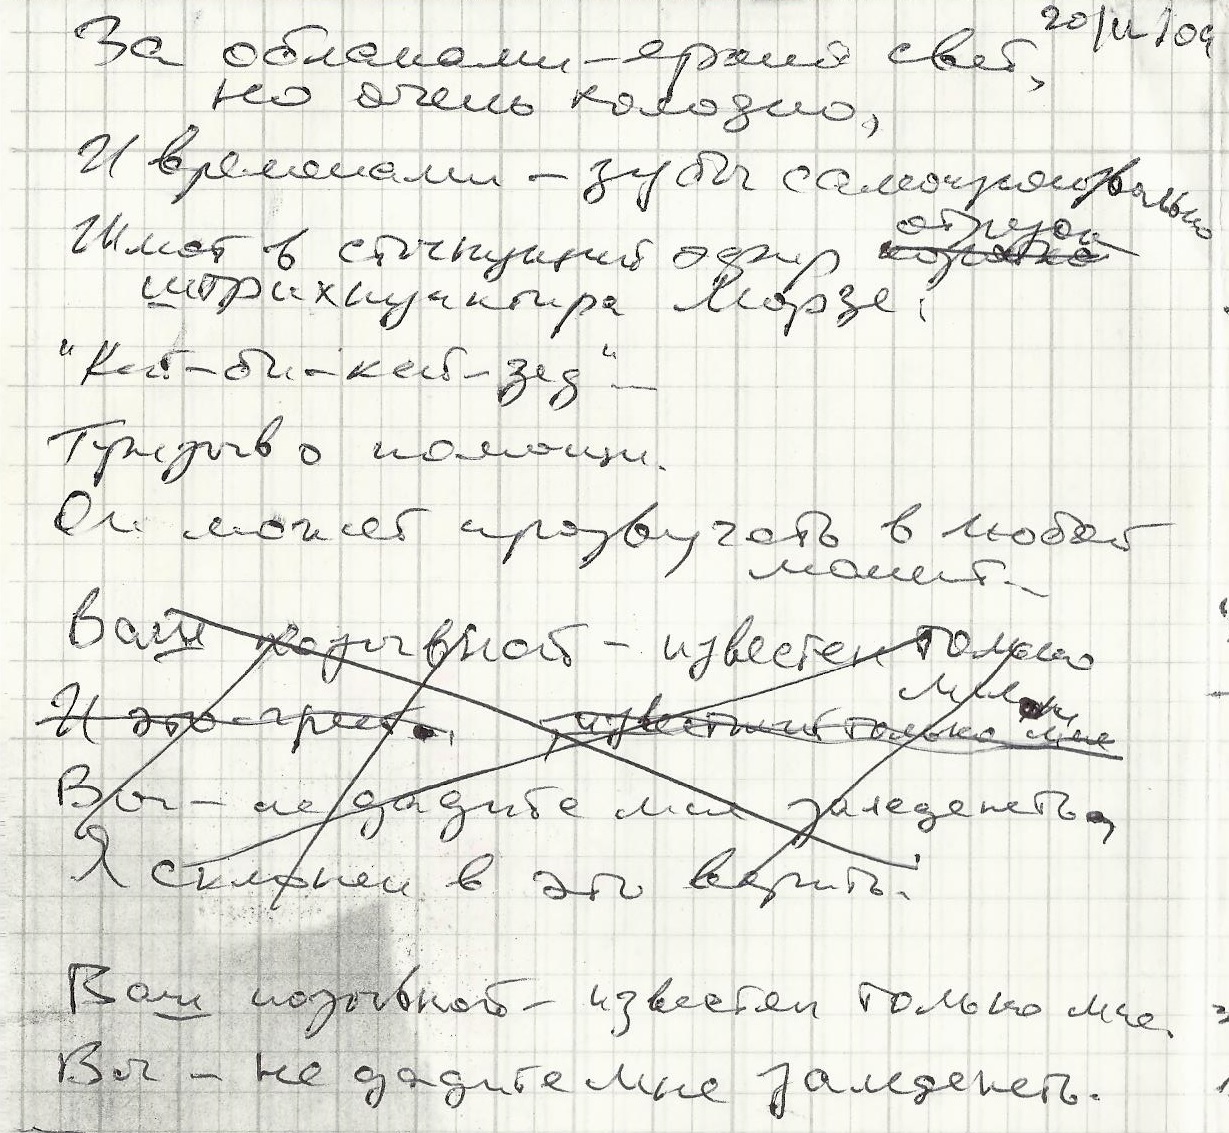 20/II/09
За облаками – яркий свет,
но очень холодно,
И временами – зубы самочинно
Шлют в стынущий эфир отрезок
штрихпунктира Морзе:
"Кей-би-кей-зед" –
Призыв о помощи.
Он может прозвучать в любой
момент. –
Ваш позывной – известен только
мне
И это – греет, известный только мне
Вы – не дадите мне заледенеть,
Я склонен в это верить.
Ваш позывной – известен только мне.
Вы – не дадите мне заледенеть.